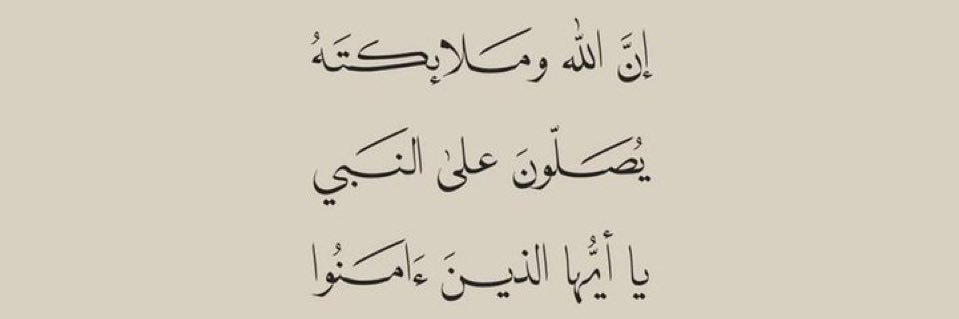 إنَّ الله ومَلائكتَهُ
يُصَلّونَ علىٰ النَبي
يا أيُّها الذينَ ءَامَنُوا